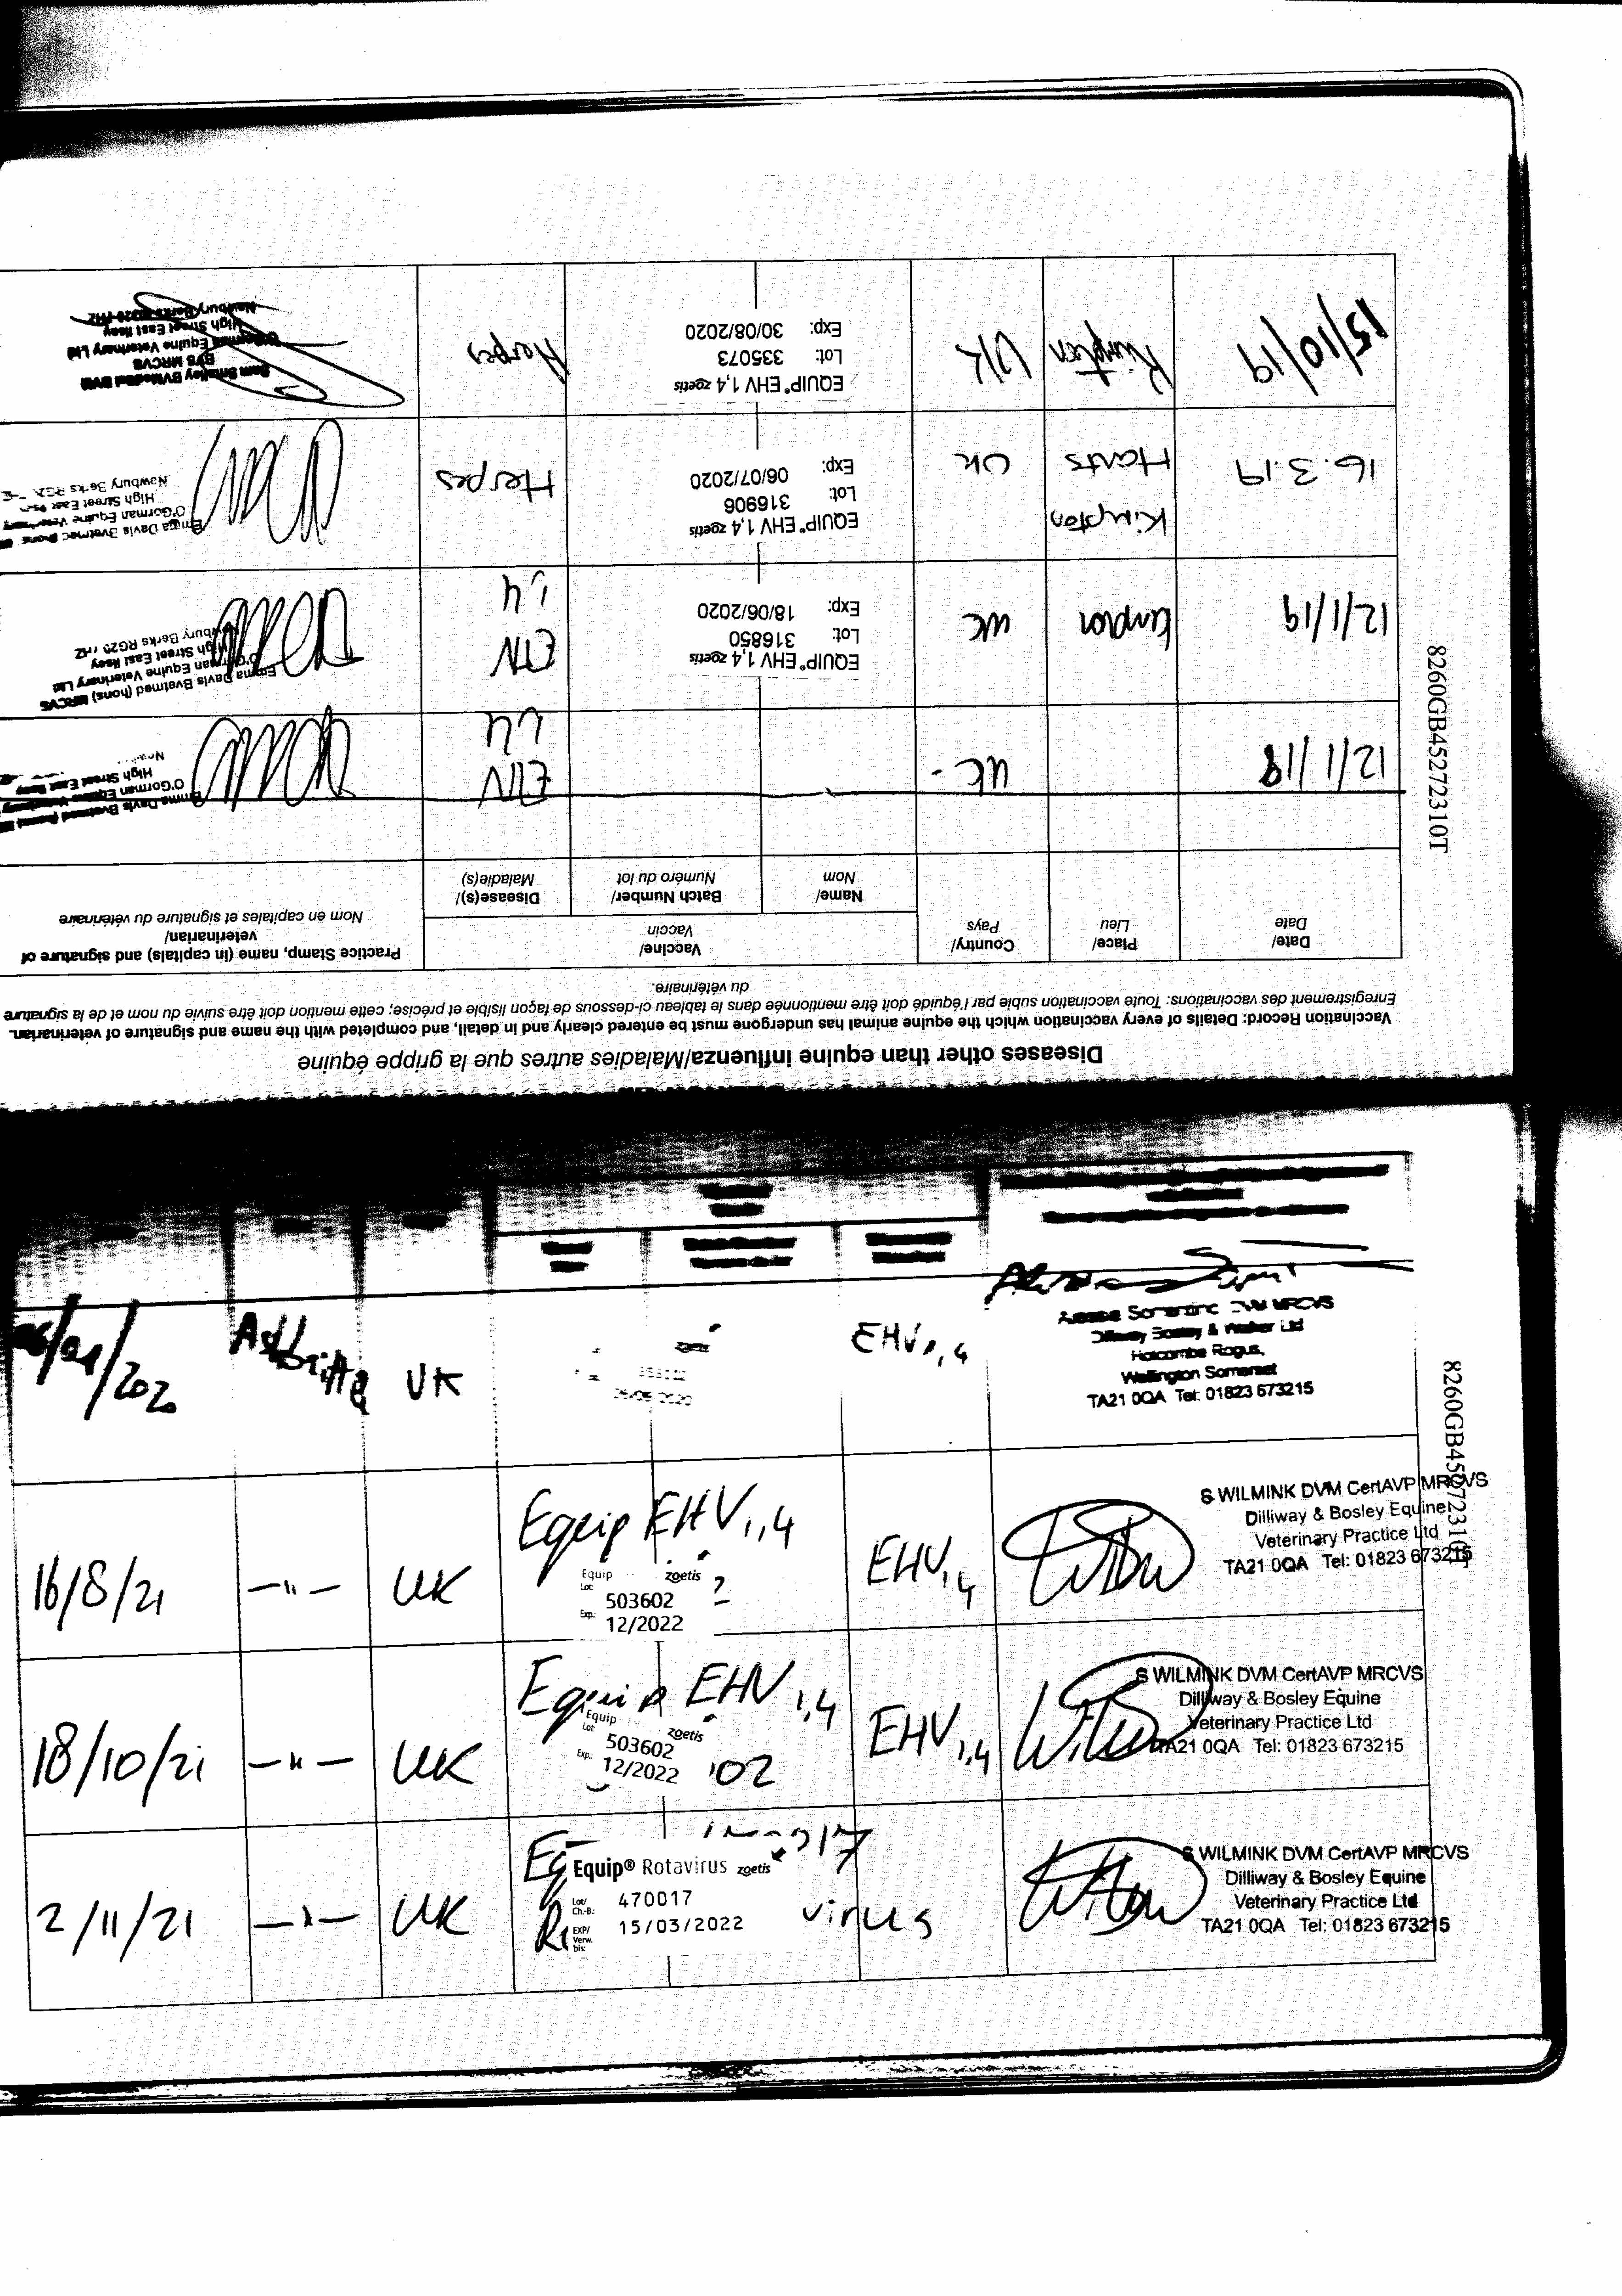 Diseases other than equine influenza/Maladies autres que la grippe équine
Vaccination Record: Details of every vaccination which the equine animal has undergone must be entered clearly and in detail, and completed with the name and signature of veterinarian.
Enregistrement des vaccinations: Toute vaccination subie par l'équidé doit être mentionnée dans le tableau ci-dessous de façon lisible et précise; cette mention doit être suivie du nom et de la signature
du vétérinaire.
Date/
Date
Place/
Lieu
Country/
Pays
Vaccine/
Vaccin
Name/
Nom
Batch Number/
Numéro du lot
Disease(s)/
Maladie(s)
Practice Stamp, name (in capitals) and signature of
veterinarian/
Nom en capitales et signature du vétérinaire
12/1/18
UK
EHV
1,4
Emma Davis Bvetmed
O'Gorman Equine
High Street East
12/1/19
Kimpton
UK
EQUIP® EHV 1,4 zoetis
Lot: 316850
Exp: 18/06/2020
EHV
1,4
Emma Davis Bvetmed (hons) MRCVS
O'Gorman Equine Veterinary Ltd
High Street East Ilsley
Newbury Berks RG20 7HZ
16.3.19
Kimpton
Hants
UK
EQUIP® EHV 1,4 zoetis
Lot: 316906
Exp: 06/07/2020
Herpes
Emma Davis Bvetmed
O'Gorman Equine
High Street East
Newbury Berks
15/10/19
Kimpton
UK
EQUIP® EHV 1,4 zoetis
Lot: 335073
Exp: 30/08/2020
Herpes
BVS MRCVS
O'Gorman Equine Veterinary Ltd
High Street East Ilsley
Newbury Berks RG20 7HZ
8260GB45272310T
Ashbrittle
UK
EHV 1,4
DVM MRCVS
Holcombe Rogus,
Wellington Somerset
TA21 0QA Tel: 01823 673215
16/8/21
—"—
UK
Equip EHV 1,4
Equip zoetis
Lot: 503602
Exp: 12/2022
EHV 1,4
S WILMINK DVM CertAVP MRCVS
Dilliway & Bosley Equine
Veterinary Practice Ltd
TA21 0QA Tel: 01823 673215
18/10/21
—"—
UK
Equip EHV 1,4
Equip zoetis
Lot: 503602
Exp: 12/2022
EHV 1,4
S WILMINK DVM CertAVP MRCVS
Dilliway & Bosley Equine
Veterinary Practice Ltd
TA21 0QA Tel: 01823 673215
2/11/21
—"—
UK
Equip® Rotavirus zoetis
Lot/
Ch.-B.: 470017
EXP/
Verw.
bis: 15/03/2022
virus
S WILMINK DVM CertAVP MRCVS
Dilliway & Bosley Equine
Veterinary Practice Ltd
TA21 0QA Tel: 01823 673215